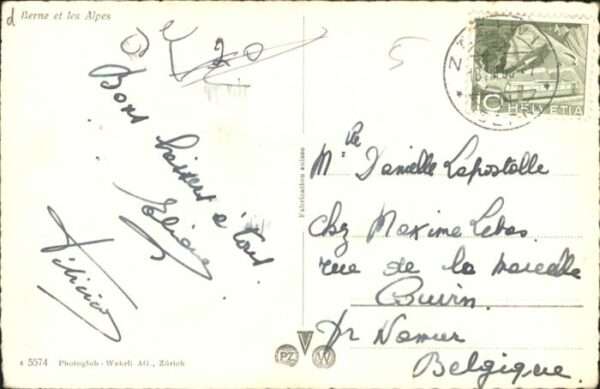 Berne et les Alpes
20
5
10 HELVETIA
Bons baisers à tous.
Eliane
Félicie
Fabrication suisse
Mlle Danielle Lapostolle
Chez Maxime Lebas
rue de la marcelle
pr Namur
Belgique.
5574 Photoglob-Wehrli AG., Zürich
PZ W